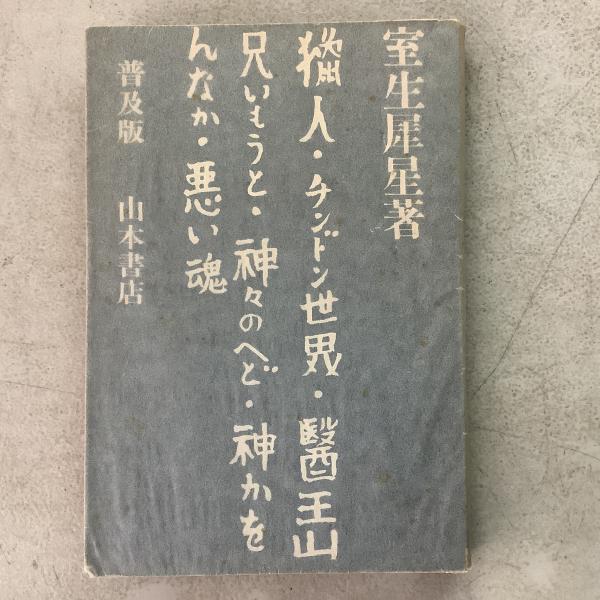 室生犀星著
猟人・チンドン世界・醫王山
兄いもうと・神々のへど・神かを
んなか・悪い魂
普及版　山本書店